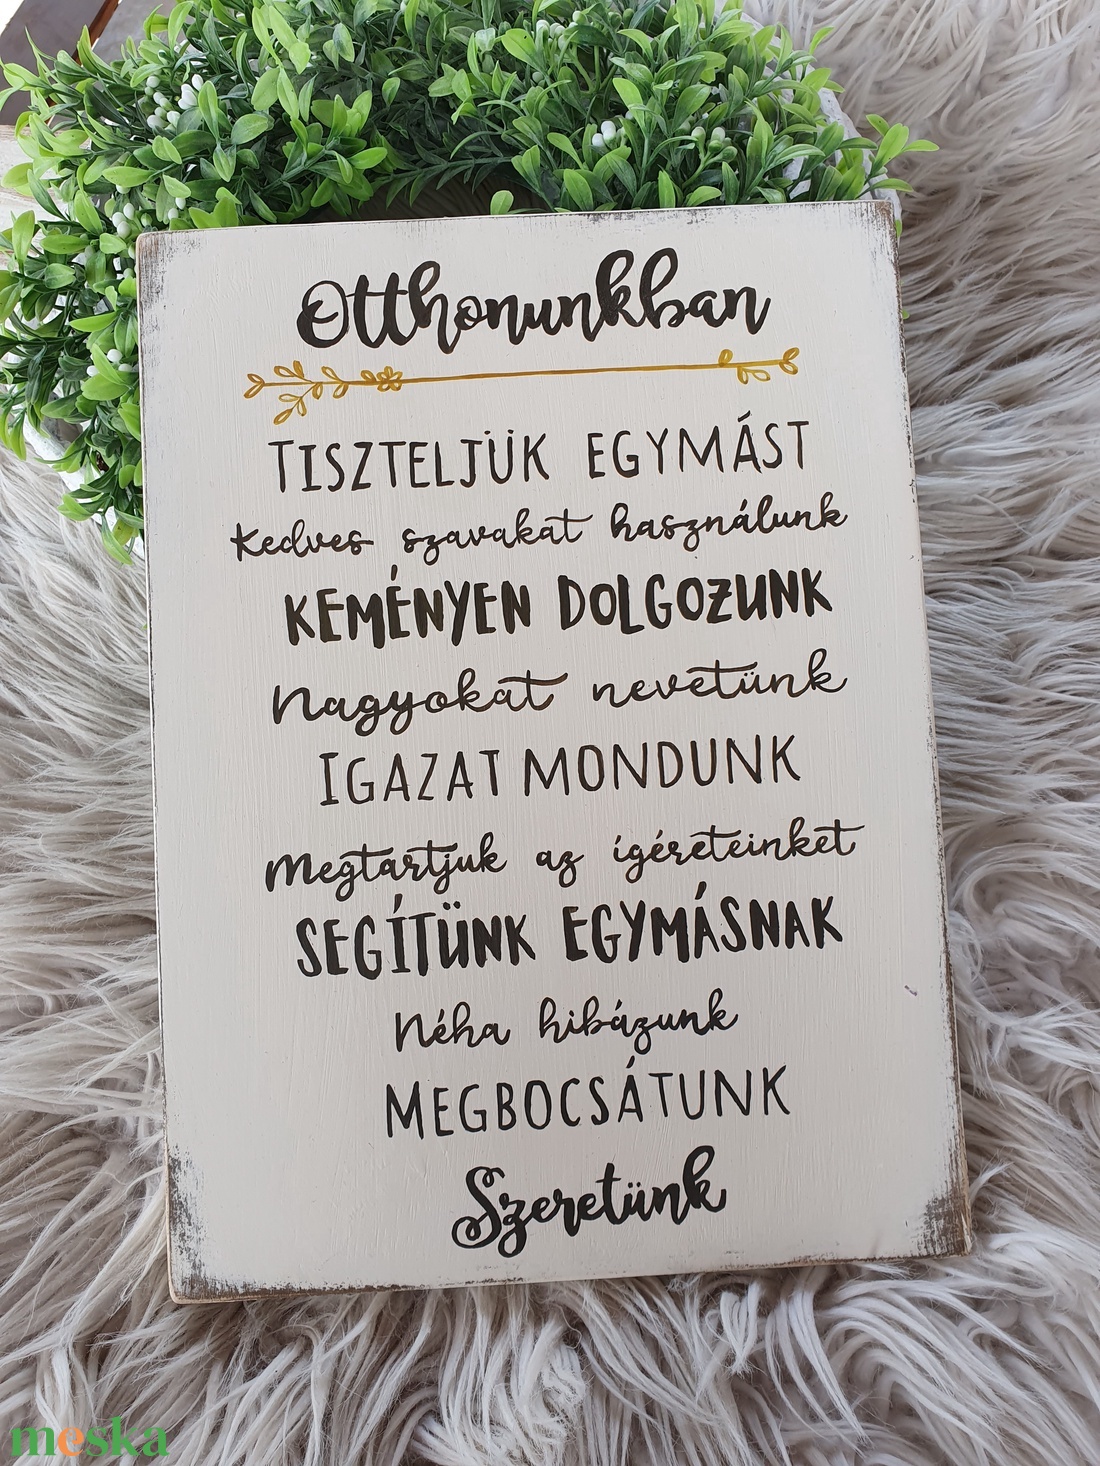 Otthonunkban
TISZTELJÜK EGYMÁST
Kedves szavakat használunk
KEMÉNYEN DOLGOZUNK
Nagyokat nevetünk
IGAZAT MONDUNK
Megtartjuk az ígéreteinket
SEGÍTÜNK EGYMÁSNAK
Néha hibázunk
MEGBOCSÁTUNK
Szeretünk
meska